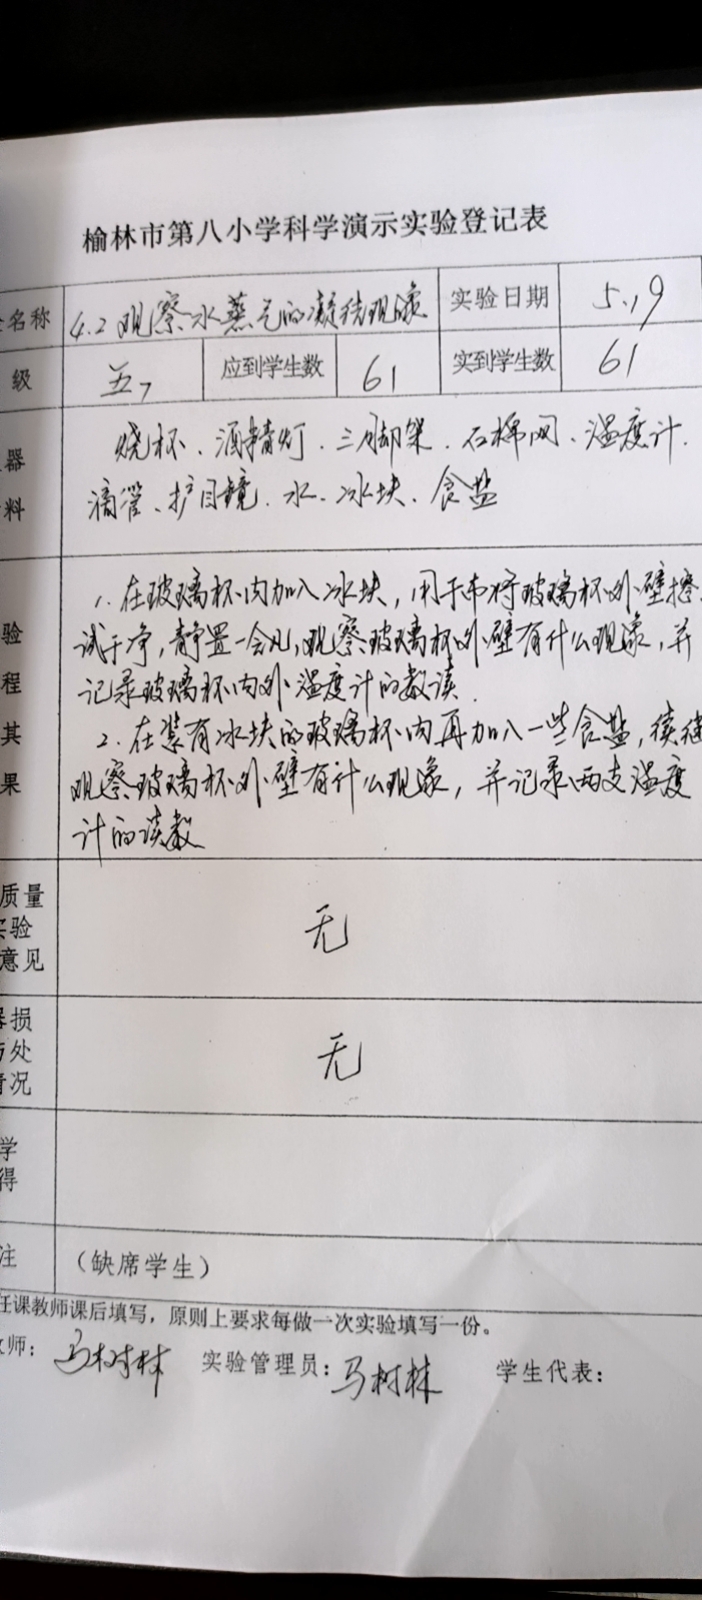 榆林市第八小学科学演示实验登记表
名称 4.2 观察水蒸气的凝结现象 实验日期 5.19
级 五7 应到学生数 61 实到学生数 61
器 烧杯、酒精灯、三脚架、石棉网、温度计、
料 滴管、护目镜、水、冰块、食盐
1. 在玻璃杯内加入冰块,用干布将玻璃杯外壁擦
验 试干净,静置一会儿,观察玻璃杯外壁有什么现象,并
程 记录玻璃杯内外温度计的数读.
其 2. 在装有冰块的玻璃杯内再加入一些食盐,续继
果 观察玻璃杯外壁有什么现象,并记录两支温度
计的读数
质量
实验 无
意见
器损
处 无
情况
学
得
注 (缺席学生)
任课教师课后填写,原则上要求每做一次实验填写一份。
教师: 马树林 实验管理员: 马树林 学生代表: